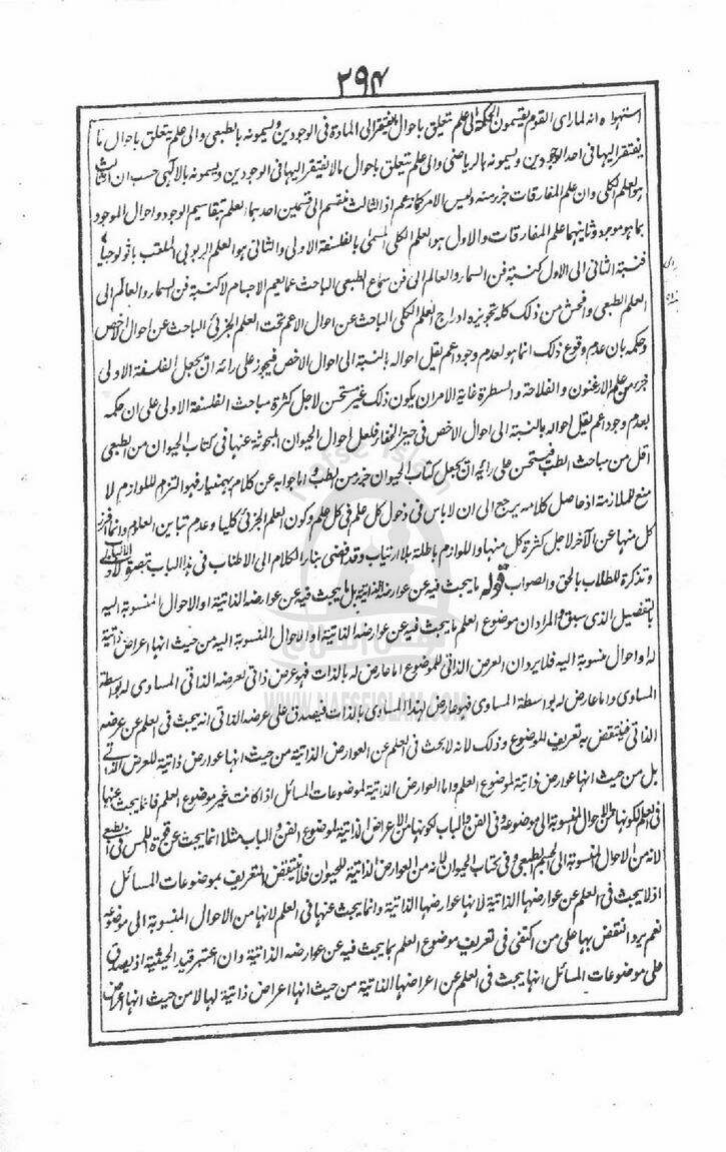 ٢٩٤
استهواه انه لما رای القوم یقسمون الحکمة الی علم تتعلق باحوال ما یفتقر الی المادة فی الوجودین ویسمونه بالطبعی والی علم یتعلق باحوال ما
یفتقر الیها فی احد الوجودین ویسمونه بالریاضی والی علم تتعلق باحوال ما لا یفتقر الیها فی الوجودین ویسمونه بالالٰهی حسب ان الثالث
هو العلم الکلی وان علم المفارقات جزء منه ولیس الامر کما زعم اذ الثالث منقسم الی قسمین احدهما العلم بتقاسیم الوجود واحوال الموجود
بما هو موجود وثانیهما علم المفارقات والاول هو العلم الکلی المسمی بالفلسفة الاولی والثانی هو العلم الربوبی الملقب باثولوجیا
فنسبة الثانی الی الاول کنسبة فن السماء والعالم الی فن سماع الطبعی الباحث عما یعم الاجسام لا کنسبة فن السماء والعالم الی
العلم الطبعی وافحش من ذلک کله تجویزه ادراج العلم الکلی الباحث عن احوال الاعم تحت العلم الجزئی الباحث عن احوال الاخص
وحکمه بان عدم وقوع ذلک انما هو لعدم وجود اعم یقل احواله بالنسبة الی احوال الاخص فیجوز علی رائه ان یجعل الفلسفة الاولی
جزء من علم الارغنون والفلاحة والسطرة غایة الامر ان یکون ذلک غیر مستحسن لاجل کثرة مباحث الفلسفة الاولی علی ان حکمه
بعدم وجود اعم یقل احواله بالنسبة الی احوال الاخص فی حیز الخفاء فلعل احوال الحیوان المبحوثة عنها فی کتاب الحیوان من الطبعی
اقل من مباحث الطب فیستحسن علی رائه ان یجعل کتاب الحیوان جزء من الطب واما جوابه عن کلام بهمنیار فهو التزام للوازم لا
منع للملازمة اذ حاصل کلامه یرجع الی ان لا باس فی دخول کل علم فی کل علم وکون العلم الجزئی کلیا وعدم تباین العلوم وانما افرز
کل منها عن الآخر لاجل کثرة کل منها واللوازم باطلة بلا ارتیاب وقد افضی بنا الکلام الی الاطناب فی هذا الباب تبصرة لاولی الالباب
وتذکرة للطلاب بالحق والصواب قوله ما یبحث فیه عن عوارضه الذاتیة بل ما یبحث فیه عن عوارضه الذاتیة او الاحوال المنسوبة الیه
بالتفصیل الذی سبق والمراد ان موضوع العلم ما یبحث فیه عن عوارضه الذاتیة او الاحوال المنسوبة الیه من حیث انها اعراض ذاتیة
له او احوال منسوبة الیه فلا یرد ان العرض الذاتی للموضوع اما عارض له بالذات فهو عرض ذاتی لعرضه الذاتی المساوی له بواسطة
المساوی واما عارض له بواسطة المساوی فهو عارض لهذا المساوی بالذات فیصدق علی عرضه الذاتی انه یبحث فی العلم عن عرضه
الذاتی فینتقض به تعریف الموضوع وذلک لانه لا یبحث فی العلم عن العوارض الذاتیة من حیث انها عوارض ذاتیة للعرض الذاتی
بل من حیث انها عوارض ذاتیة لموضوع العلم واما العوارض الذاتیة لموضوعات المسائل اذا کانت غیر موضوع العلم فانما یبحث عنها
فی العلم لکونها من الاحوال المنسوبة الی موضوعه وفی الفن والباب لکونها من الاعراض الذاتیة لموضوع الفن والباب مثلا انما یبحث عن قوة اللمس فی الطبعی
لانه من الاحوال المنسوبة الی الجسم الطبعی وفی کتاب الحیوان لانه من العوارض الذاتیة للحیوان فلا ینتقض التعریف بموضوعات المسائل
اذ لا یبحث فی العلم عن عوارضها الذاتیة لانها عوارضها الذاتیة وانما یبحث عنها فی العلم لانها من الاحوال المنسوبة الی موضوعه
نعم یرد النقض بها علی من اکتفی فی تعریف موضوع العلم بما یبحث فیه عن عوارضه الذاتیة وان اعتبر قید الحیثیة اذ یصدق
علی موضوعات المسائل انها یبحث فی العلم عن اعراضها الذاتیة من حیث انها اعراض ذاتیة لها لا من حیث انها اعراض
WWW.NAFSEISLAM.COM